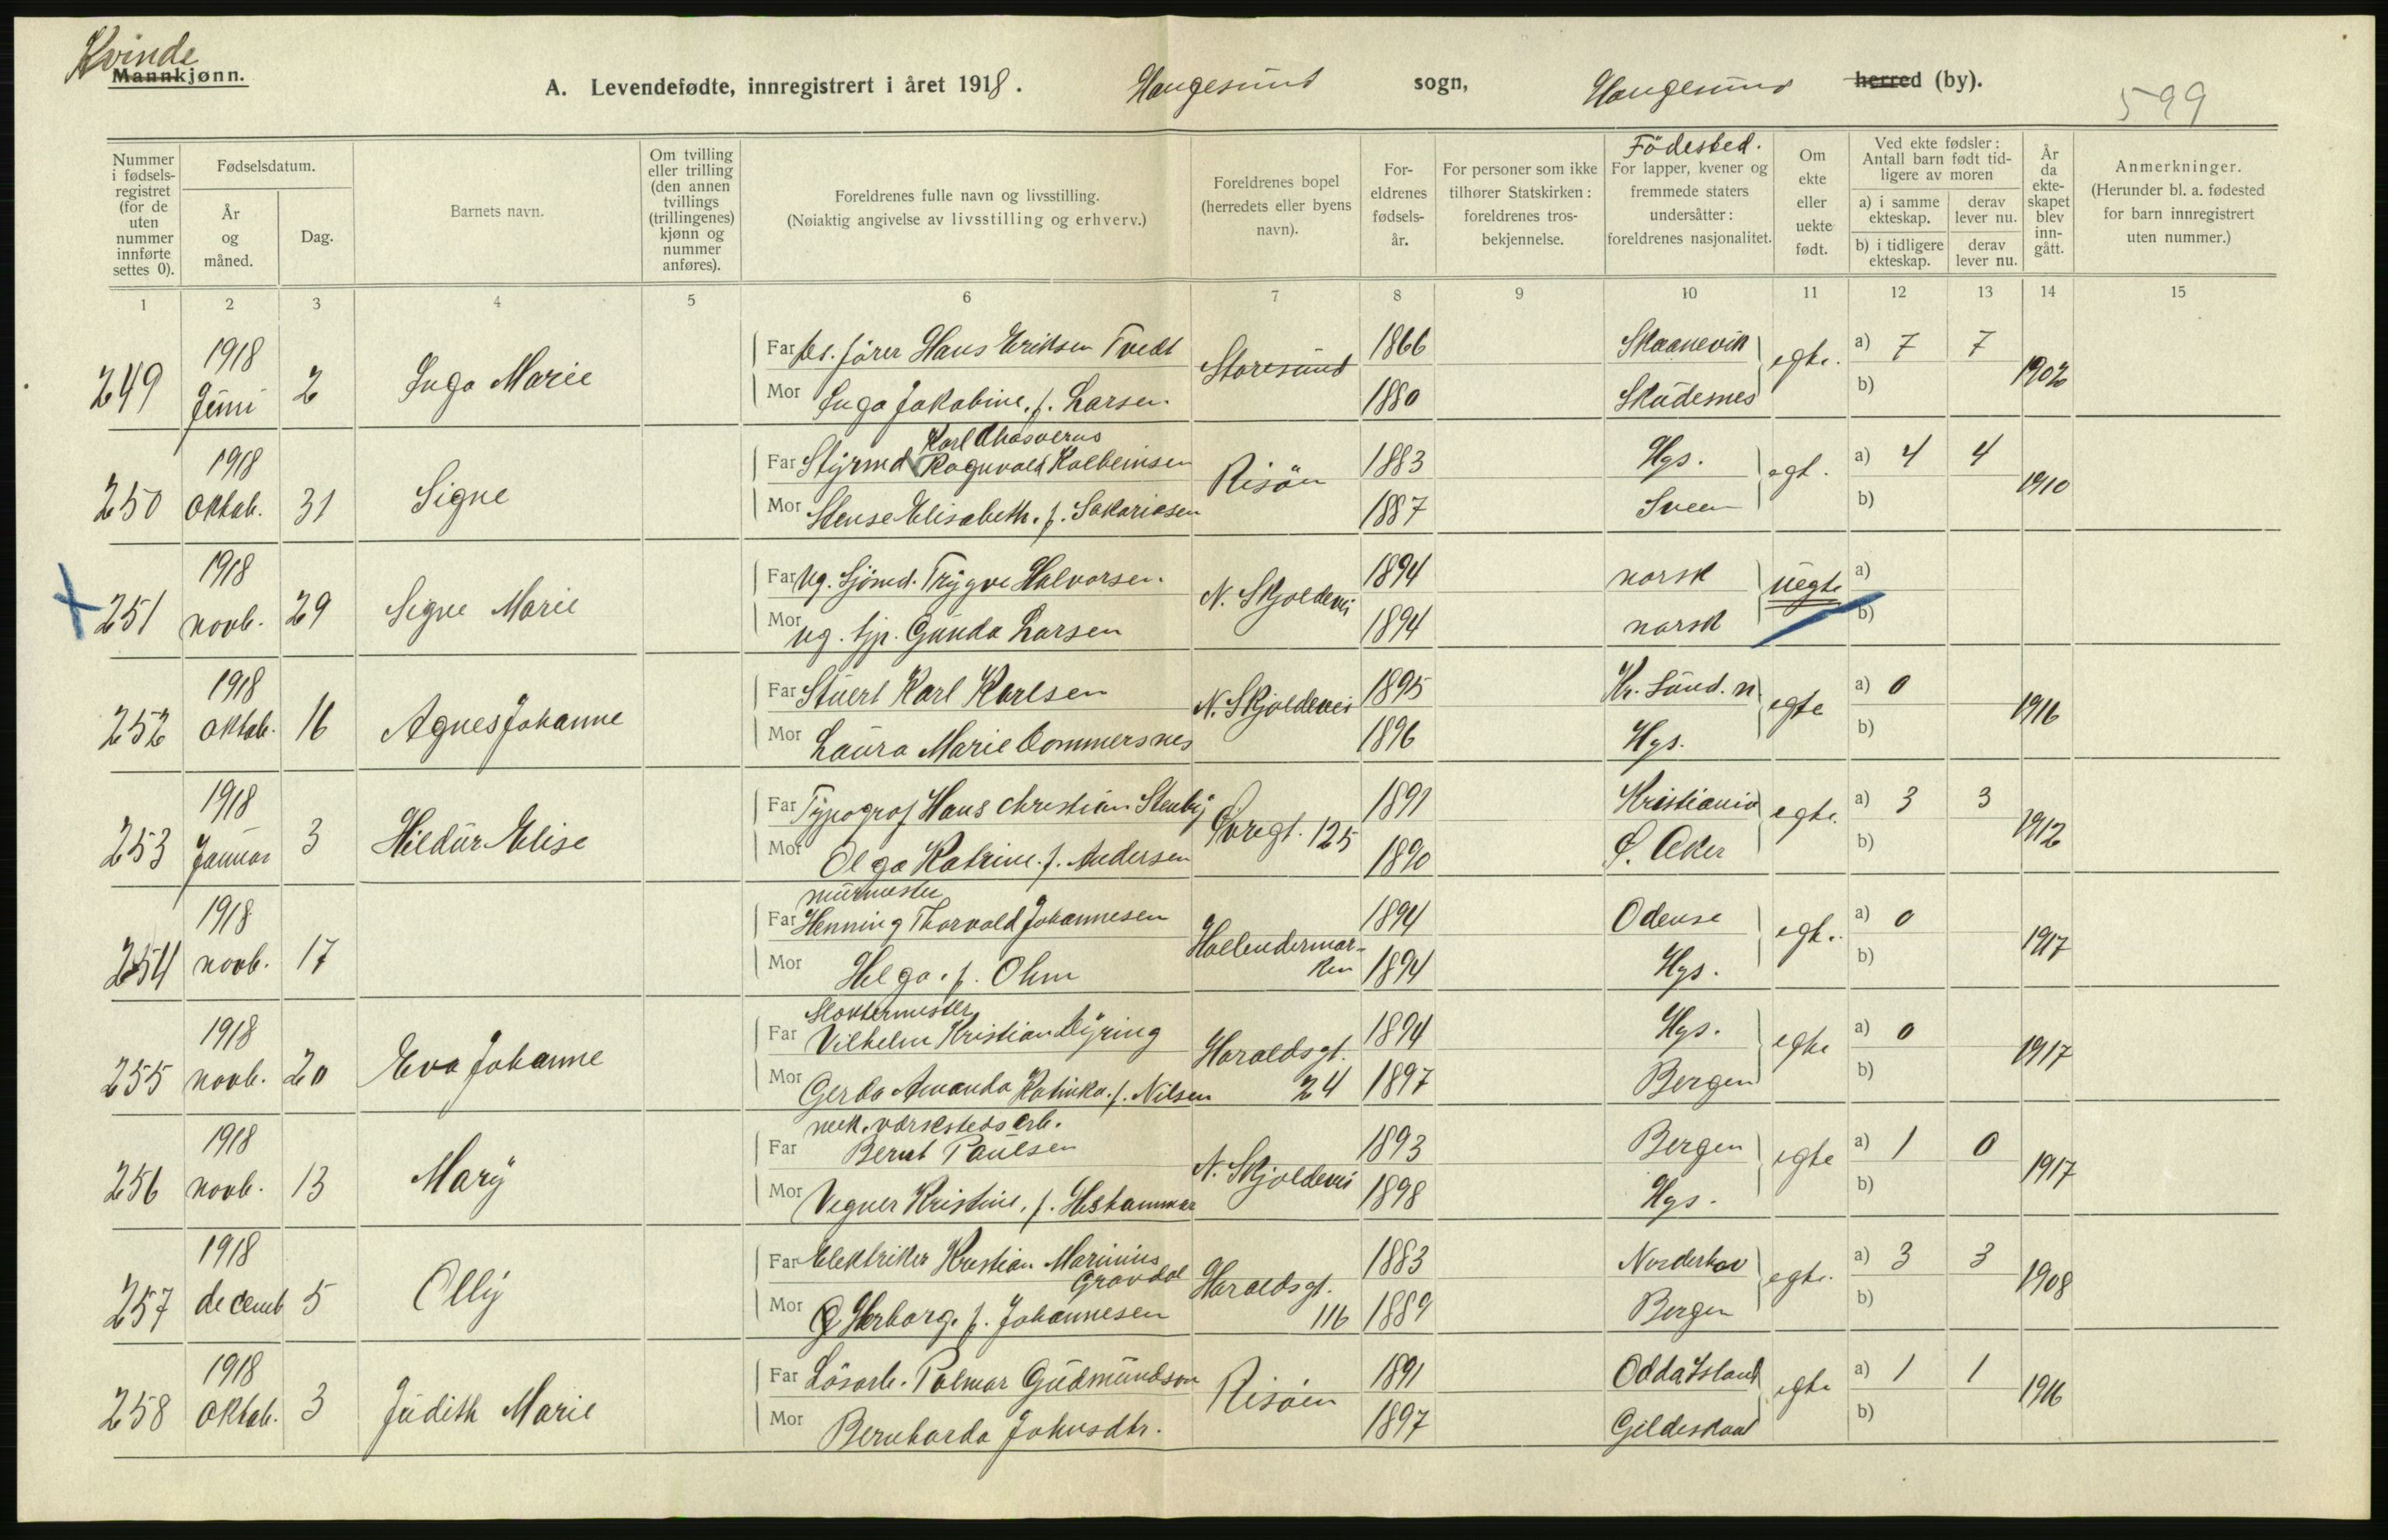 Kvinde
Mannkjønn.
A. Levendefødte, innregistrert i året 1918. Haugesund sogn, Haugesund herred (by).
599
Nummer i fødselsregistret (for de uten nummer innførte settes 0).
Fødselsdatum.
År og måned.
Dag.
Barnets navn.
Om tvilling eller trilling (den annen tvillings (trillingenes) kjønn og nummer anføres).
Foreldrenes fulle navn og livsstilling.
(Nøiaktig angivelse av livsstilling og erhverv.)
Foreldrenes bopel (herredets eller byens navn).
Foreldrenes fødselsår.
For personer som ikke tilhører Statskirken: foreldrenes trosbekjennelse.
Födested.
For lapper, kvener og fremmede staters undersåtter: foreldrenes nasjonalitet.
Om ekte eller uekte født.
Ved ekte fødsler: Antall barn født tidligere av moren
a) i samme ekteskap.
derav lever nu.
b) i tidligere ekteskap.
derav lever nu.
År da ekteskapet blev inngått.
Anmerkninger.
(Herunder bl. a. fødested for barn innregistrert uten nummer.)
1 2 3 4 5 6 7 8 9 10 11 12 13 14 15
249 1918 Juni 2 Inga Marie
Far bes. fører Hans Eriksen Tvedt Storesund 1866 Skaanevik egte. a) 7 7 1902
Mor Inga Jakobine, f. Larsen 1880 Skudesnes b)
250 1918 Oktob. 31 Signe
Karl Ahasverus
Far Styrmd Ragnvald Kolbeinsen Risöen 1883 Hgs. egt. a) 4 4 1910
Mor Stense Elisabeth. f. Sakariasen 1887 Sveen b)
251 1918 novb. 29 Signe Marie
Far Ug. Sjömd. Trygve Halvorsen N. Skjoldevei 1894 norsk uegte a)
Mor ug. tjp. Gunda Larsen 1894 norsk b)
252 1918 Oktob. 16 Agnes Johanne
Far Stuert Karl Karlsen N. Skjoldevei 1895 Kr. Sund. N egte a) 0 1916
Mor Laura Marie Ommersnes 1896 Hgs. b)
253 1918 Januar 3 Hildur Elise
Far Typograf Hans Christian Stenby 125 1891 Kristiania egte. a) 3 3 1912
Mor Olga Katrine. f. Andersen 1890 Ö. Aker b)
254 1918 novb. 17
murmester
Far Henning Thorvald Johannesen Hollendermarken 1894 Odense egte. a) 0 1917
Mor Helga. f. Ohm 1894 Hgs. b)
255 1918 novb. 20 Eva Johanne
Slovtermester
Far Vilhelm Kristian Dyring Haraldsgt. 24 1894 Hgs. egte a) 0 1917
Mor Gerda Amanda Katinka. f. Nilsen 1897 Bergen b)
256 1918 novb. 13 Mary
mek. værksteds arb.
Far Bernt Paulsen N. Skjoldevei 1893 Bergen egte a) 1 0 1917
Mor Vegner Kristine, f. Heshammar 1898 Hgs. b)
257 1918 decemb 5 Olly
Far Elektriker Kristian Marinius Gravdal Haraldsgt. 116 1883 Norderhov egte. a) 3 3 1908
Mor Herborg. f. Johannesen 1889 Bergen b)
258 1918 Oktob. 3 Judith Marie
Far Lösarb. Palmar Gudmundson Risöen 1891 Odda Island egte a) 1 1 1916
Mor Bernharda Johnsdtr. 1897 Gildeskaal b)